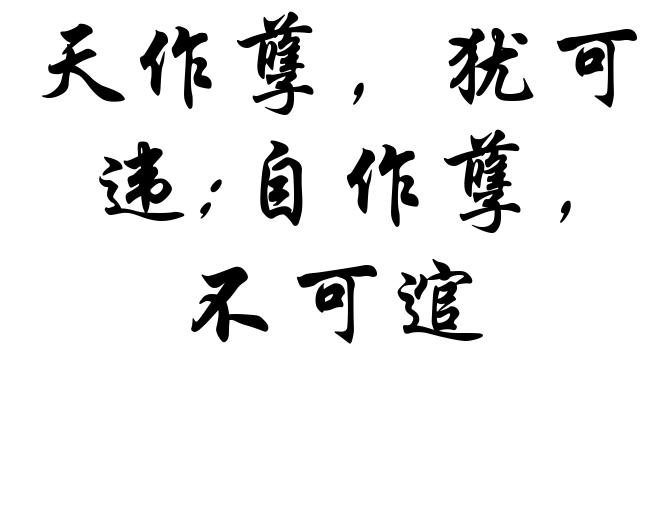 天作孽，犹可
违;自作孽，
不可逭